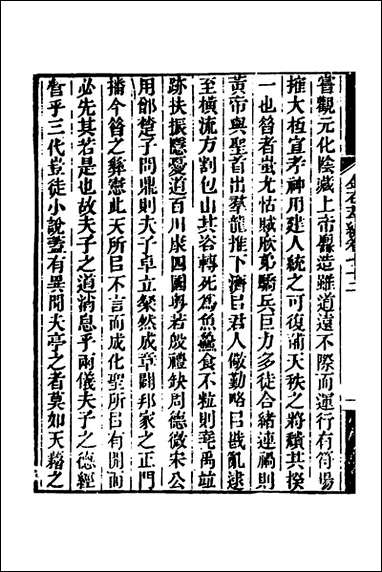 金石萃編卷七十二
一
嘗觀元化陰藏上帝造雖道遠不際而運行有符場
搉大柢宣考神用建人統之可復補天秩之將頹其揆
一也昝者蚩尤怙賊欣弟驕兵巨力多徒合緒連禍則
黃帝與聖首出羣龍推下濟㠯君人儆勤略㠯戡亂逮
至橫流方割包山其咨轉死爲魚鱻食不粒則堯禹竝
跡扶振隱憂道百川康四國粤若殷禮缺周德微宋公
用鄫楚子問鼎則夫子卓立粲然成章闢邦家之正門
播今昝之彝憲此天所㠯不言而成化聖所㠯有開而
必先其若是也故夫子之道消息乎兩儀夫子之德經
營乎三代豈徒小說蓋有異聞夫亭之者莫如天藉之